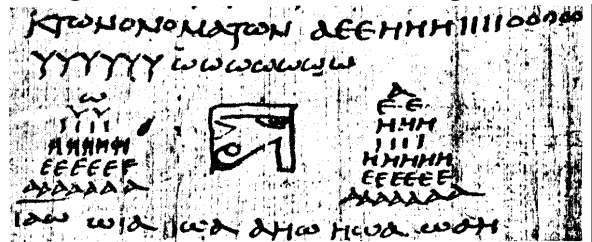 κτωνονοματων αεεηηηιιιιοοοοο
υυυυυυ ωωωωωωω
ω
υυ
ιιιι
ηηηηη
εεεεεε
ααααααα
α
εε
ηηη
ιιιι
ηηηηη
εεεεεε
ααααααα
ιαω ωια ιωα αηω ηωα ωαη